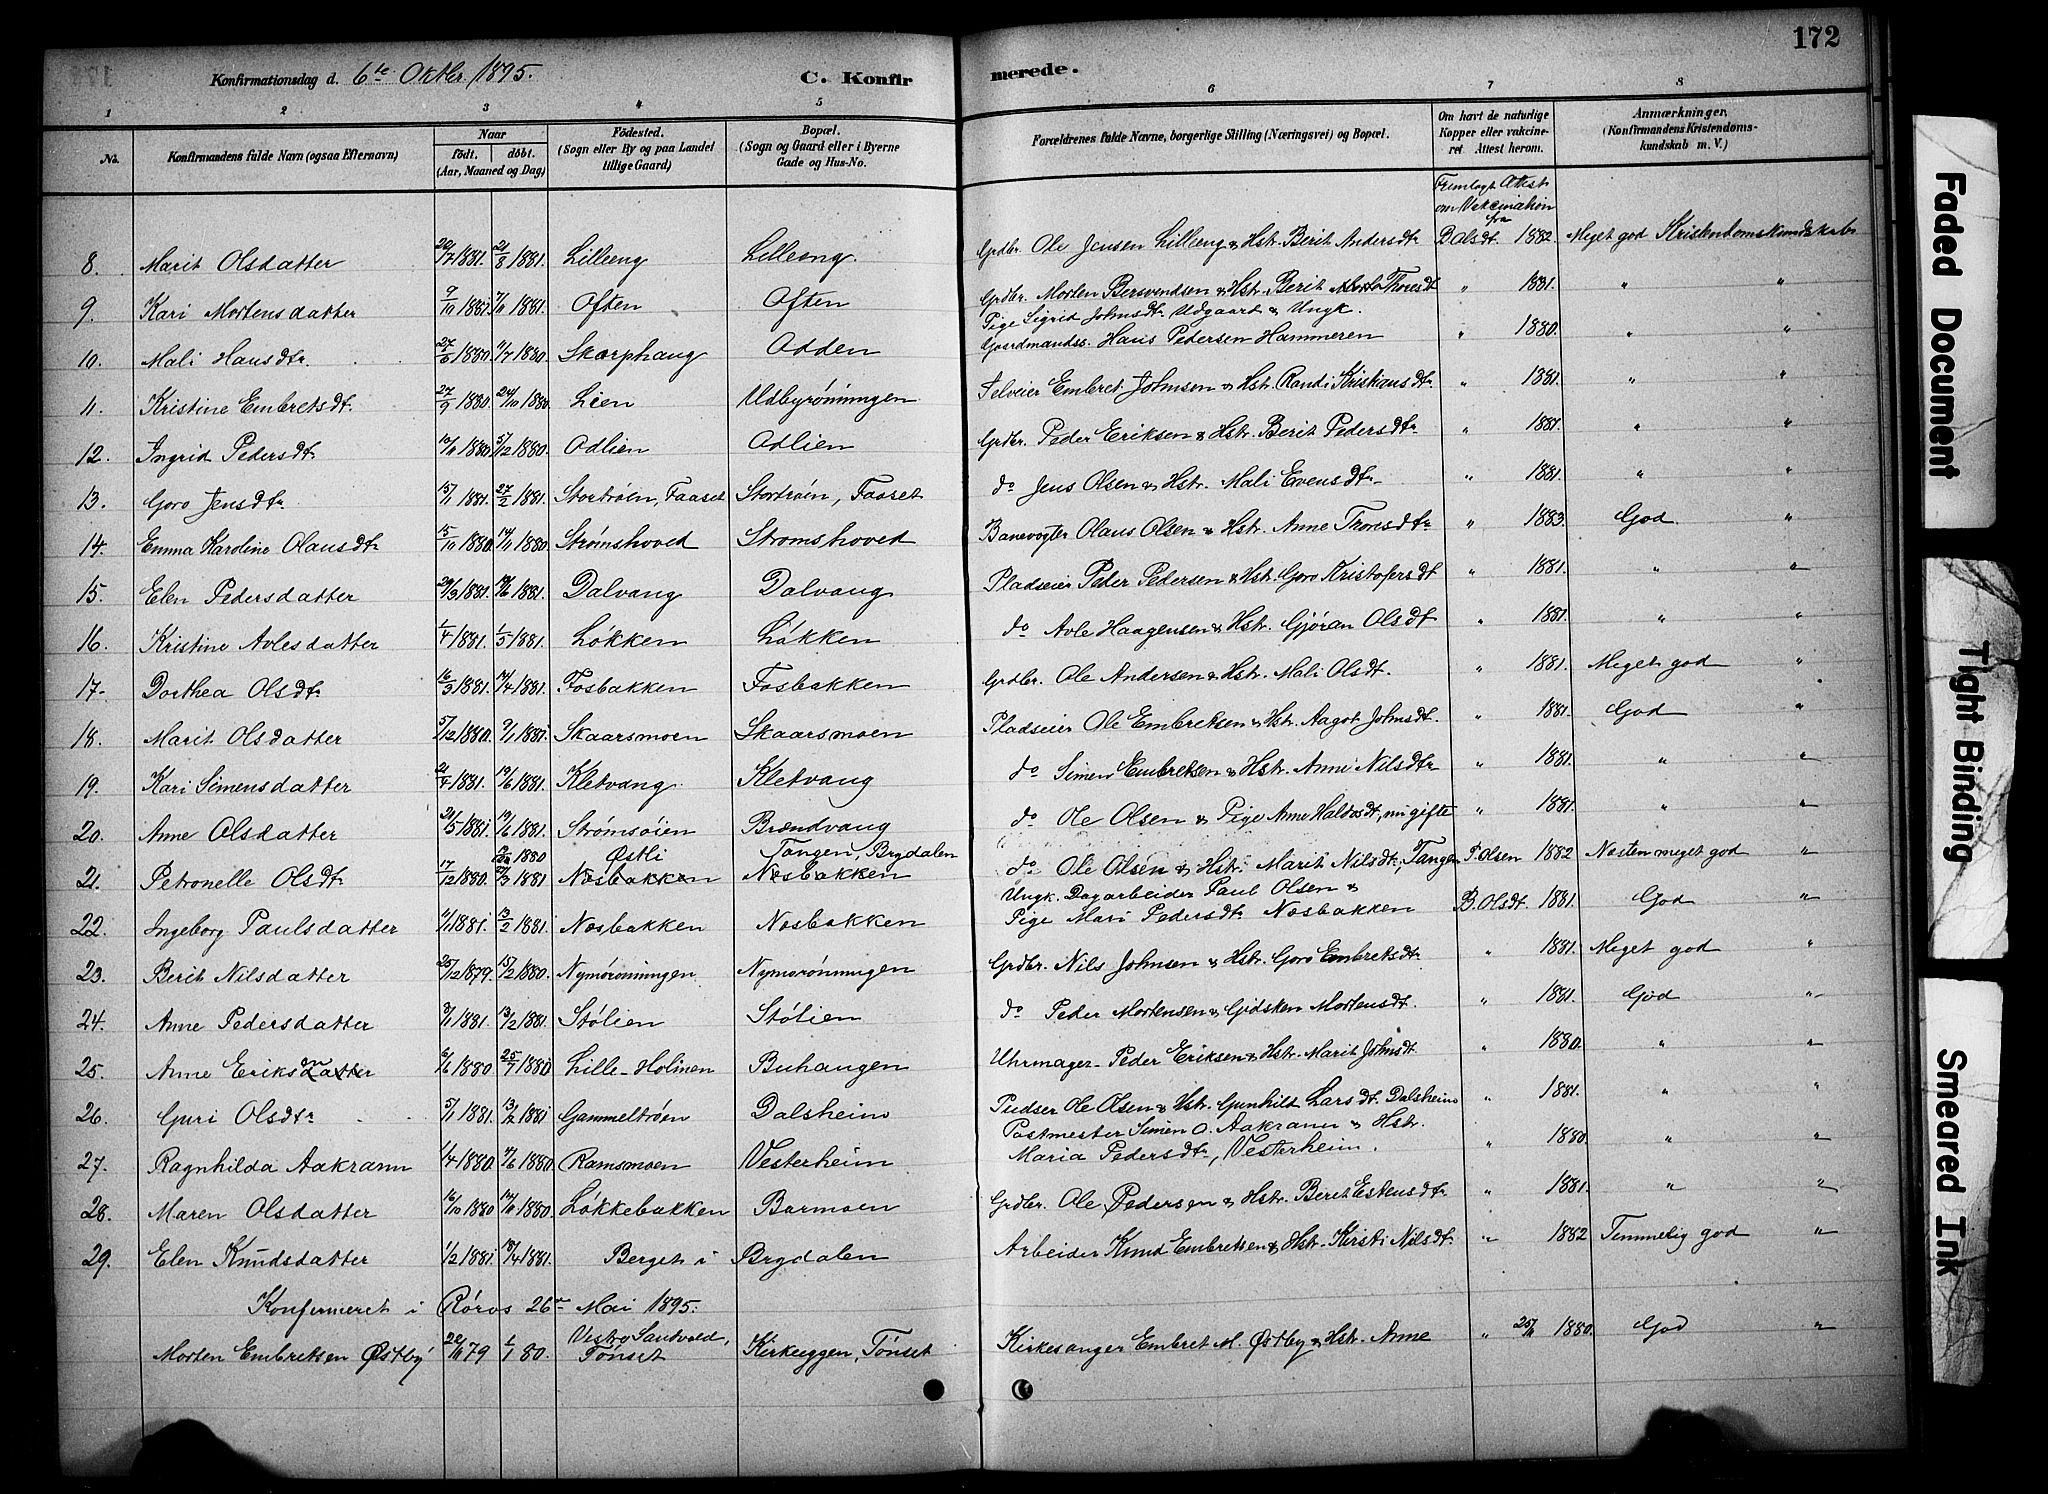 172
Konfirmationsdag d. 6te Oktbr. 1895.
C. Konfirmerede.
1 2 3 4 5 6 7 8
No. Konfirmandens fulde Navn (ogsaa Efternavn) Naar født. døbt. (Aar, Maaned og Dag) Fødested. (Sogn eller By og paa Landet tillige Gaard) Bopæl. (Sogn og Gaard eller i Byerne Gade og Hus-No. Forældrenes fulde Navne, borgerlige Stilling (Næringsvei) og Bopæl. Om havt de naturlige Kopper eller vakcineret. Attest herom. Anmærkninger, (Konfirmandens Kristendomskundskab m. V.)
Fremlagt Attest om Vakcination fra
8. Marit Olsdatter 20/7 1881. 21/8 1881. Lilleeng Lilleeng. Grdbr. Ole Jensen Lilleeng & Hstr. Berit Andersdtr B Olsdt. 1882. Meget god Kristendomskundskab
9. Kari Mortensdatter 9/10 1881. 7/11 1881. Often Often Grdbr. Morten Bersvendsen & Hstr. Berit Thorsdt " 1881. " "
10. Mali Hansdtr. 27/5 1880. 11/7 1880. Skarphaug Odden Pige Sigrid Johnsdtr. Udgaard & Ungk.
Gaardmandss. Hans Pedersen Hammeren " 1880. " "
11. Kristine Embretsdt. 27/9 1880. 24/10 1880. Lien Udbyrønningen Selveier Embret Johnsen & Hstr. Randi Kristiansdtr. " 1881. " "
12. Ingrid Pedersdtr. 10/11 1880. 5/12 1880. Odlien Odlien Grdbr. Peder Eriksen & Hstr. Berit Pedersdtr. " 1881. " "
13. Goro Jensdtr. 15/1 1881. 27/2 1881. Stortrøen, Faaset Stortrøen, Faaset do Jens Olsen & Hstr. Mali Evensdtr. " 1881. " "
14. Emma Karoline Olausdtr 15/10 1880. 14/11 1880. Strømshoved Strømshoved Banevogter Olaus Olsen & Hstr. Anne Thorsdtr " 1883. God. "
15. Elen Pedersdatter 29/3 1881. 19/6 1881. Dalvang Dalvang Pladseier Peder Pedersen & Hstr. Goro Kristofersdt " 1881. " "
16. Kristine Avlesdatter 1/4 1881. 1/5 1881. Løkken Løkken do Avle Haagensen & Hstr. Gjøran Olsdt " 1881. " "
17. Dorthea Olsdtr 16/3 1881. 17/4 1881. Fosbakken Fosbakken Grdbr. Ole Andersen & Hstr. Mali Olsdt. " 1881. Meget god "
18. Marit Olsdatter 5/12 1880. 9/1 1881. Skaarsmoen Skaarsmoen Pladseier Ole Embretsen & Hstr. Aagot Johnsdt. " 1881. God "
19. Kari Simensdatter 21/4 1881. 19/6 1881. Kletvang Kletvang do Simen Embretsen & Hstr. Anne Nilsdtr " 1881. " "
20. Anne Olsdatter 21/5 1881. 19/6 1881. Strømsøien Brændvang do Ole Olsen & Pige Anne Haldosdt, nu gifte " 1881. " "
21. Petronelle Olsdtr 17/12 1880. 1880 27/3 1881 Østli Næsbakken Tangen, Brydalen Næsbakken do Ole Olsen & Hstr. Marit Nilsdt, Tangen P. Olsen 1882 Næsten meget god "
22. Ingeborg Paulsdatter 11/1 1881. 13/2 1881. Næsbakken Næsbakken Ungk. Dagarbeider Paul Olsen &
Pige Mari Pedersdtr Næsbakken B. Olsdt. 1881. God "
23. Berit Nilsdatter 25/12 1879. 15/2 1880. Nymorønningen Nymorønningen Grdbr. Nils Johnsen & Hstr. Goro Embretsdtr " 1881. Meget god "
24. Anne Pedersdatter 8/1 1881. 13/2 1881. Stølien Stølien do Peder Mortensen & Gidsken Mortensdt. " 1881. God "
25. Anne Eriksdatter 6/6 1880 25/7 1880 Lille-Holmen Buhaugen Uhrmager Peder Eriksen & Hstr. Marit Johnsdt. " 1880. " "
26. Guri Olsdtr 5/1 1881. 13/2 1881 Gammeltrøen Dalsheim Pudser Ole Olsen & Hstr. Gunhild Larsdt. Dalsheim " 1881. " "
27. Ragnhilda Aakrann 1/4 1880. 6/6 1880. Ramsmoen Vesterheim Postmester Simen O. Aakrann & Hstr.
Maria Pedersdtr, Vesterheim. " 1880. " "
28. Maren Olsdatter 16/10 1880 14/11 1880. Løkkebakken Barmoen Grdbr. Ole Pedersen & Hstr. Beret Estensdtr " 1881. " "
29. Elen Knudsdatter 1/2 1881. 18/4 1881. Berget i Brydalen Arbeider Knud Embretsen & Hstr. Kirsti Nilsdt. " 1882 Temmelig god "
Konfirmeret i Røros 26de Mai 1895.
Morten Embretsen Østby 22/11 79 1/1 80. Vestre Sandvold, Tønset Kirkeggen, Tønset Kirkesanger Embret M. Østby & Hstr. Anne " 25/11 1880. God "
Faded Document
Tight Binding
Smeared Ink